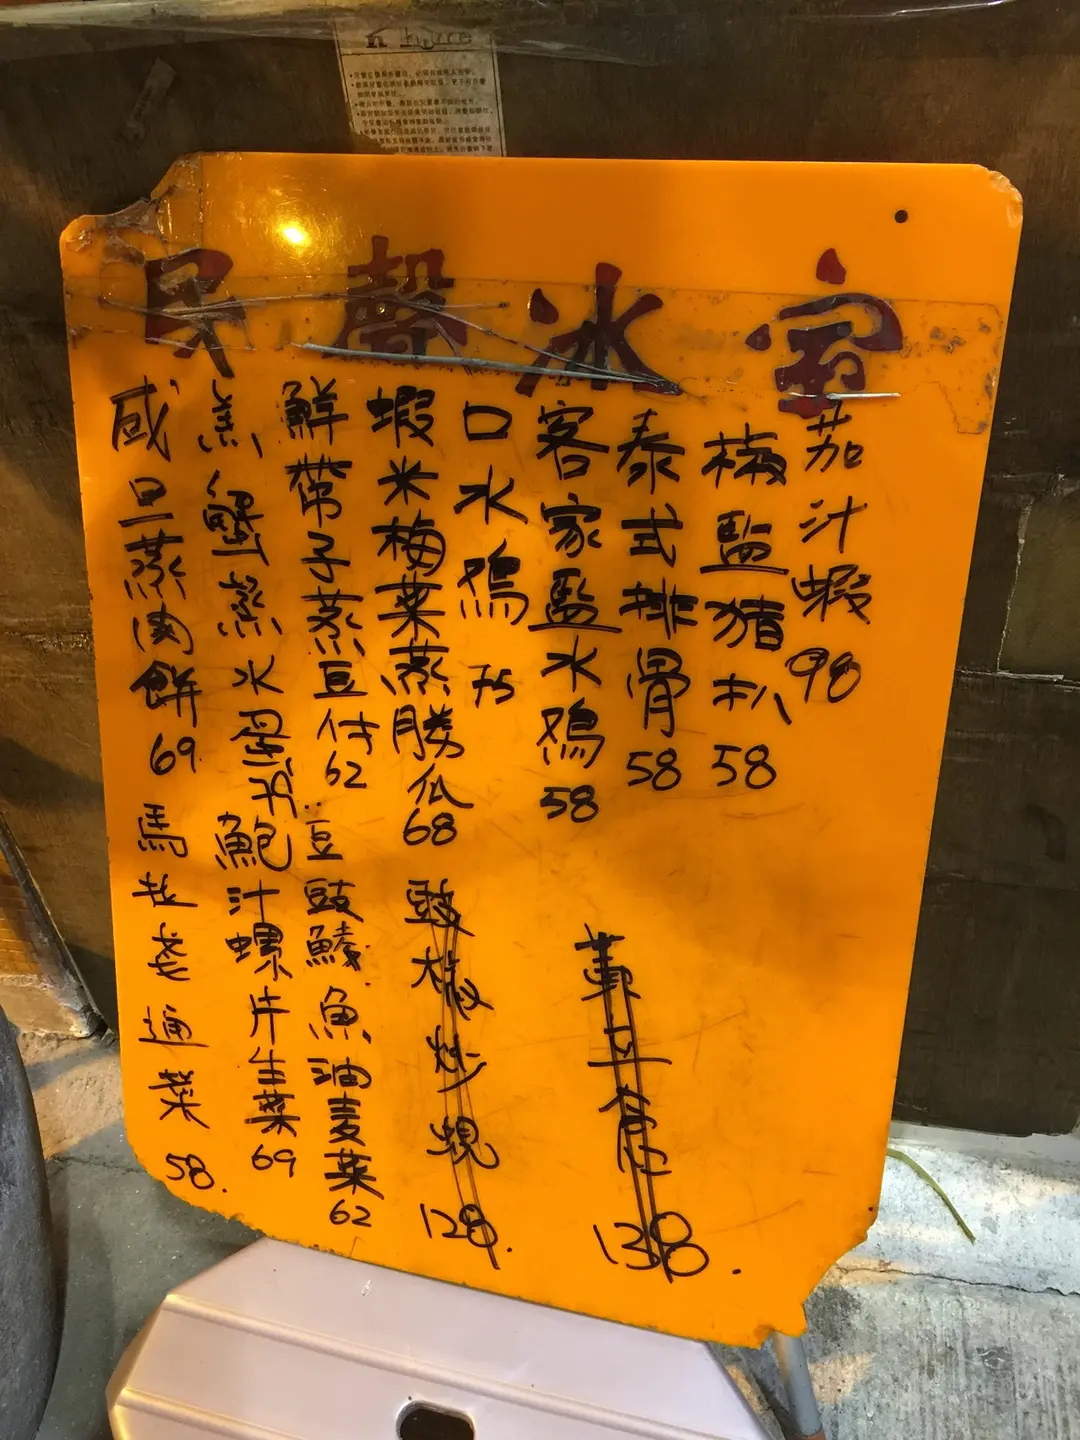 民聲冰室
茄汁蝦 98
椒盐豬扒 58
泰式排骨 58
客家盐水鸡 58
口水鸡 75
蝦米梅菜蒸勝瓜 68
鮮帶子蒸豆付 62
羔蟹蒸水蛋
咸旦蒸肉餅 69
豉椒炒蜆 128.
豆豉鯪魚油麦菜 62
鮑汁螺片生菜 69
馬拉盞通菜 58.
138.